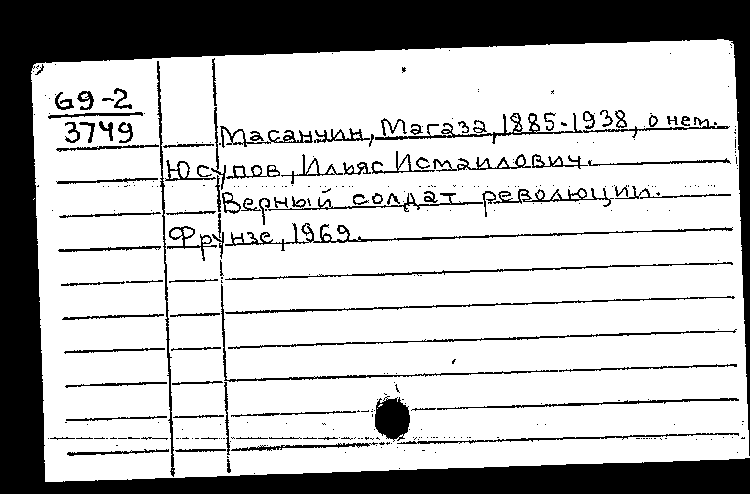 69-2
3749
Масанчин, Магаза, 1885-1938, о нем.
Юсупов, Ильяс Исмаилович.
Верный солдат революции.
Фрунзе, 1969.